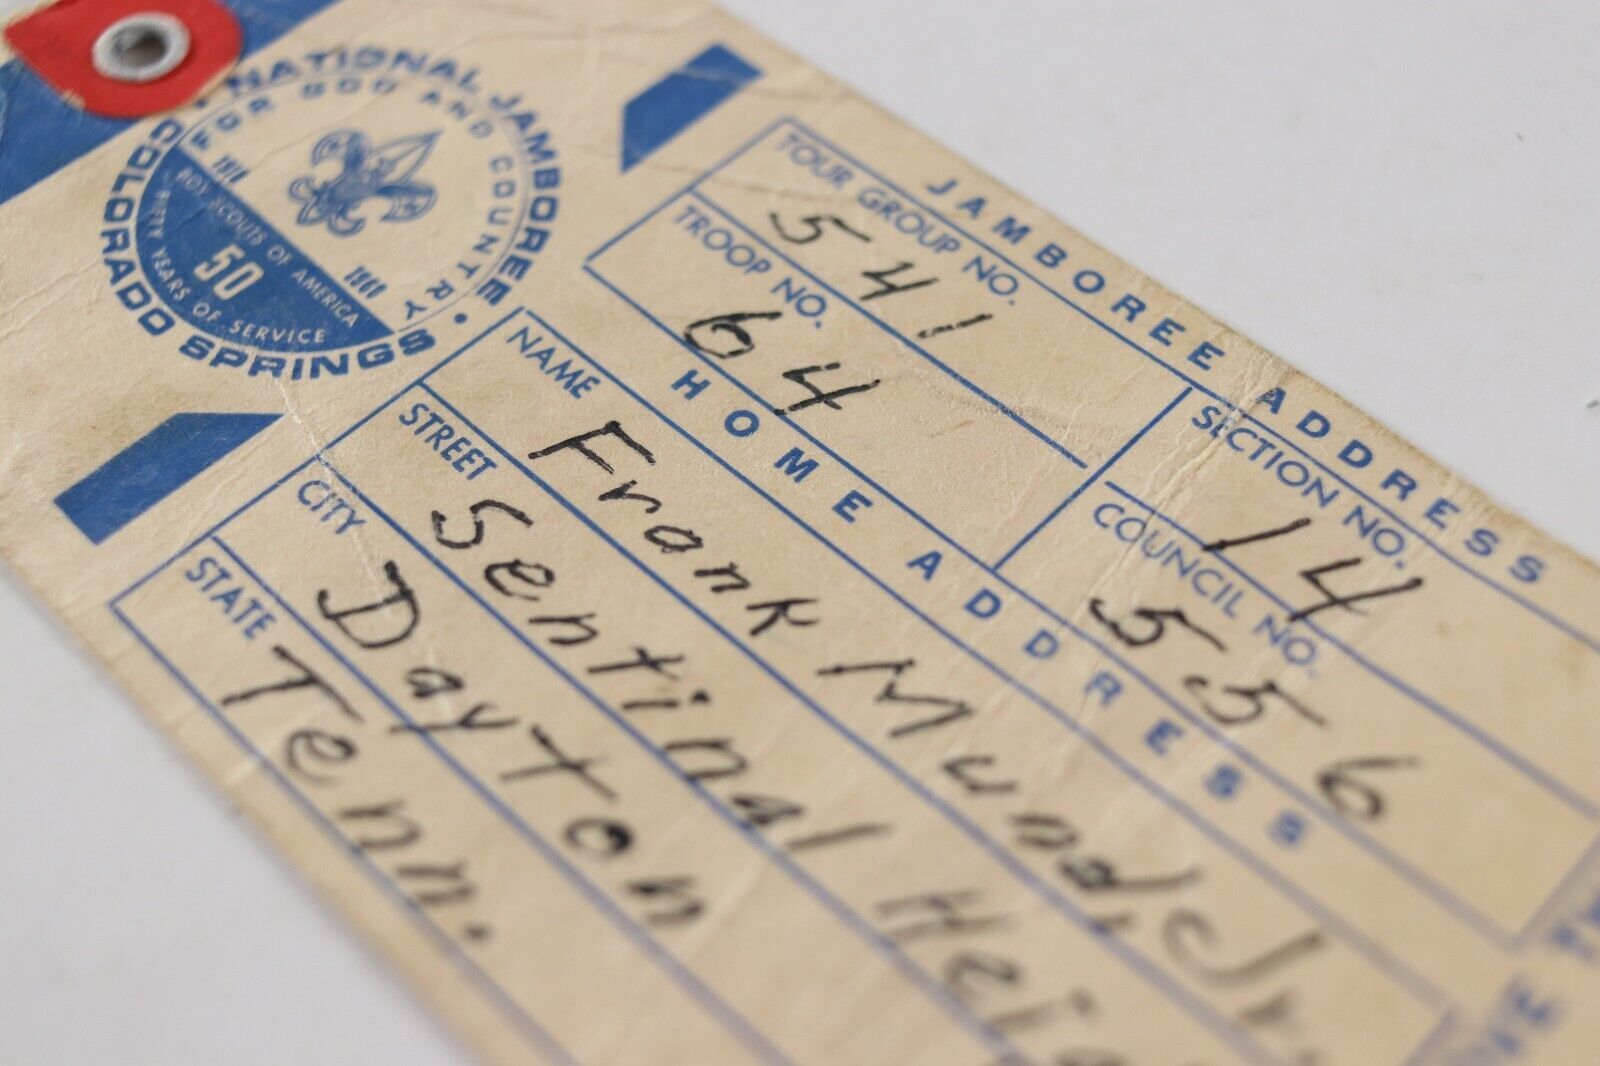 NATIONAL JAMBOREE • COLORADO SPRINGS
FOR GOD AND COUNTRY
1910 1960
BOY SCOUTS OF AMERICA
50
FIFTY YEARS OF SERVICE
JAMBOREE ADDRESS
TOUR GROUP NO. 541
SECTION NO. 14
TROOP NO. 64
COUNCIL NO. 556
HOME ADDRESS
NAME Frank Mund, Jr.
STREET Sentinal
CITY Dayton
STATE Tenn.